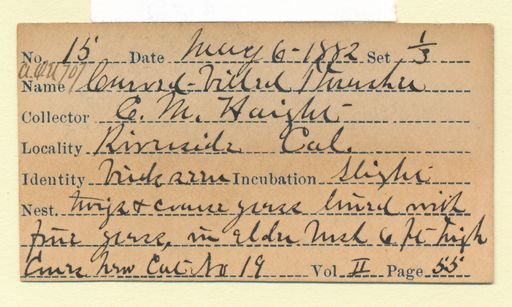 No. 15 Date May 6-1882 Set 1/3
a.o.u 707
Name Curved-Billed Thrasher
Collector E. M. Haight
Locality Riverside Cal.
Identity Bird seen Incubation Slight
Nest. twigs & coarse grass lined with
fine grass, in elder bush 6 ft high
New Cat. No 19 Vol II Page 55